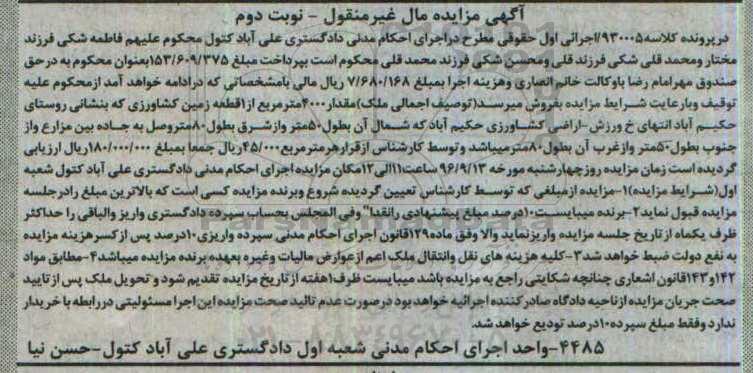 آگهی مزایده مال غیرمنقول - نوبت دوم
درپرونده کلاسه ۹۳۰۰۰۵/اجرائی اول حقوقی مطرح دراجرای احکام مدنی دادگستری علی آباد کتول محکوم علیهم فاطمه شکی فرزند
مختار ومحمد قلی شکی فرزند قلی ومحسن شکی فرزند محمد قلی محکوم است بپرداخت مبلغ ۱۵۳/۶۰۹/۳۷۵ بعنوان محکوم به درحق
صندوق مهرامام رضا باوکالت خانم انصاری وهزینه اجرا بمبلغ ۷/۶۸۰/۱۶۸ ریال مالی بامشخصاتی که درادامه خواهد آمد ازمحکوم علیه
توقیف وبارعایت شرایط مزایده بفروش میرسد(توصیف اجمالی ملک)مقدار ۴۰۰۰مترمربع از ۱قطعه زمین کشاورزی که بنشانی روستای
حکیم آباد انتهای خ ورزش-اراضی کشاورزی حکیم آباد که شمال آن بطول ۵۰متر وازشرق بطول ۸۰متروصل به جاده بین مزارع واز
جنوب بطول ۵۰متر وازغرب آن بطول ۸۰مترمیباشد وتوسط کارشناس ازقرارهرمترمربع ۴۵/۰۰۰ریال جمعا بمبلغ ۱۸۰/۰۰۰/۰۰۰ریال ارزیابی
گردیده است زمان مزایده روزچهارشنبه مورخه ۹۶/۹/۱۳ ساعت ۱۱الی ۱۲مکان مزایده اجرای احکام مدنی دادگستری علی آباد کتول شعبه
اول(شرایط مزایده)۱-مزایده ازمبلغی که توسط کارشناس تعیین گردیده شروع وبرنده مزایده کسی است که بالاترین مبلغ رادرجلسه
مزایده قبول نماید۲-برنده میبایست ۱۰درصد مبلغ پیشنهادی رانقدا" وفی المجلس بحساب سپرده دادگستری واریز والباقی را حداکثر
ظرف یکماه از تاریخ جلسه مزایده واریزنماید والا وفق ماده ۱۲۹قانون اجرای احکام مدنی سپرده واریزی ۱۰درصد پس ازکسرهزینه مزایده
به نفع دولت ضبط خواهد شد۳-کلیه هزینه های نقل وانتقال ملک اعم ازعوارض مالیات وغیره بعهده برنده مزایده میباشد۴-مطابق مواد
۱۴۲و۱۴۳قانون اشعاری چنانچه شکایتی راجع به مزایده باشد میبایست ظرف ۱هفته ازتاریخ مزایده تقدیم شود وتحویل ملک پس ازتایید
صحت جریان مزایده ازناحیه دادگاه صادرکننده اجرائیه خواهد بود درصورت عدم تائید صحت مزایده این اجرا مسئولیتی دررابطه با خریدار
ندارد وفقط مبلغ سپرده ۱۰درصد تودیع خواهد شد.
۴۴۸۵-واحد اجرای احکام مدنی شعبه اول دادگستری علی آباد کتول-حسن نیا